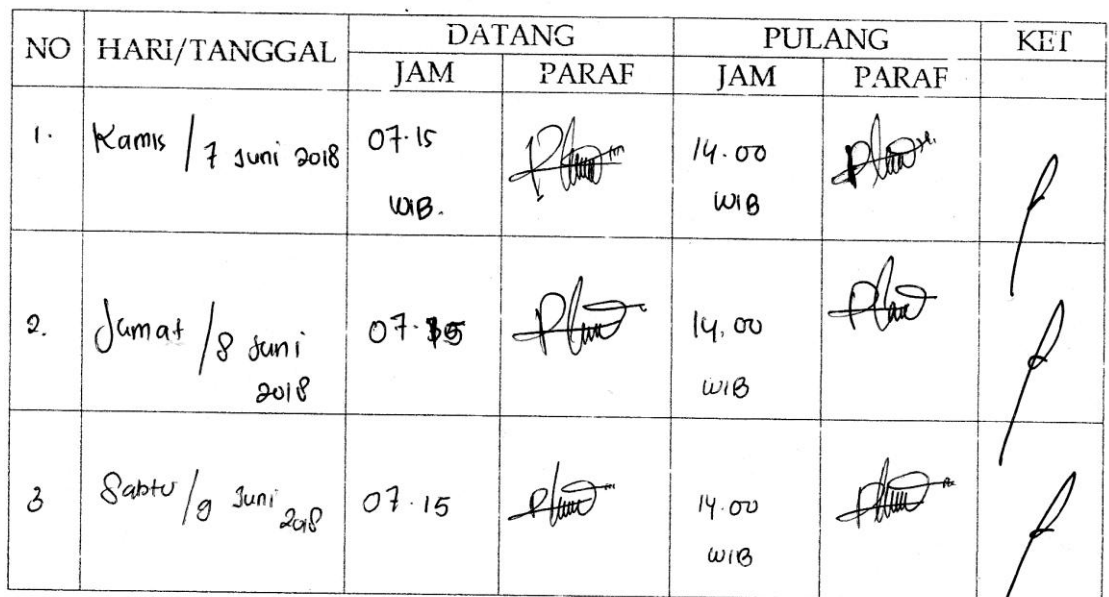 NO HARI/TANGGAL DATANG PULANG KET
JAM PARAF JAM PARAF
1. Kamis / 7 Juni 2018 07.15 WIB. 14.00 WIB
2. Jumat / 8 Juni 2018 07. 14.00 WIB
3 Sabtu / 9 Juni 2018 07.15 14.00 WIB